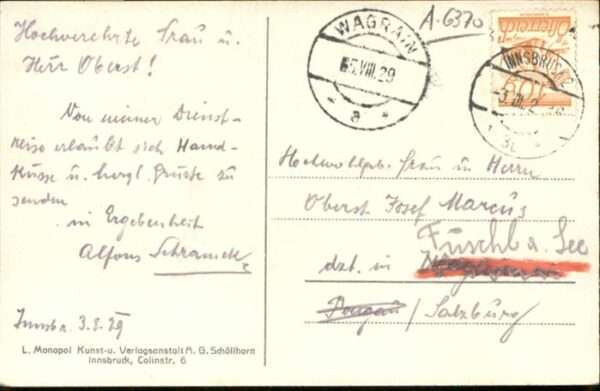 Hochverehrte Frau u.
Herr Oberst!
Von meiner Dienst-
reise erlaubt sich Hand-
küsse u. herzl. Grüsse zu
senden
in Ergebenheit
Alfons Schramek
Innsbr. 3.8.29
L. Monopol Kunst-u. Verlagsanstalt A. G. Schöllhorn
Innsbruck, Colinstr. 6
A.6370
WAGRAIN
5.VIII.29
a
Österreich
10 g
INNSBRUCK 2
Hochwohlgb. Frau u. Herrn
Oberst Josef Marcus
Fuschl a. See
dzt. in
Pongau / Salzburg